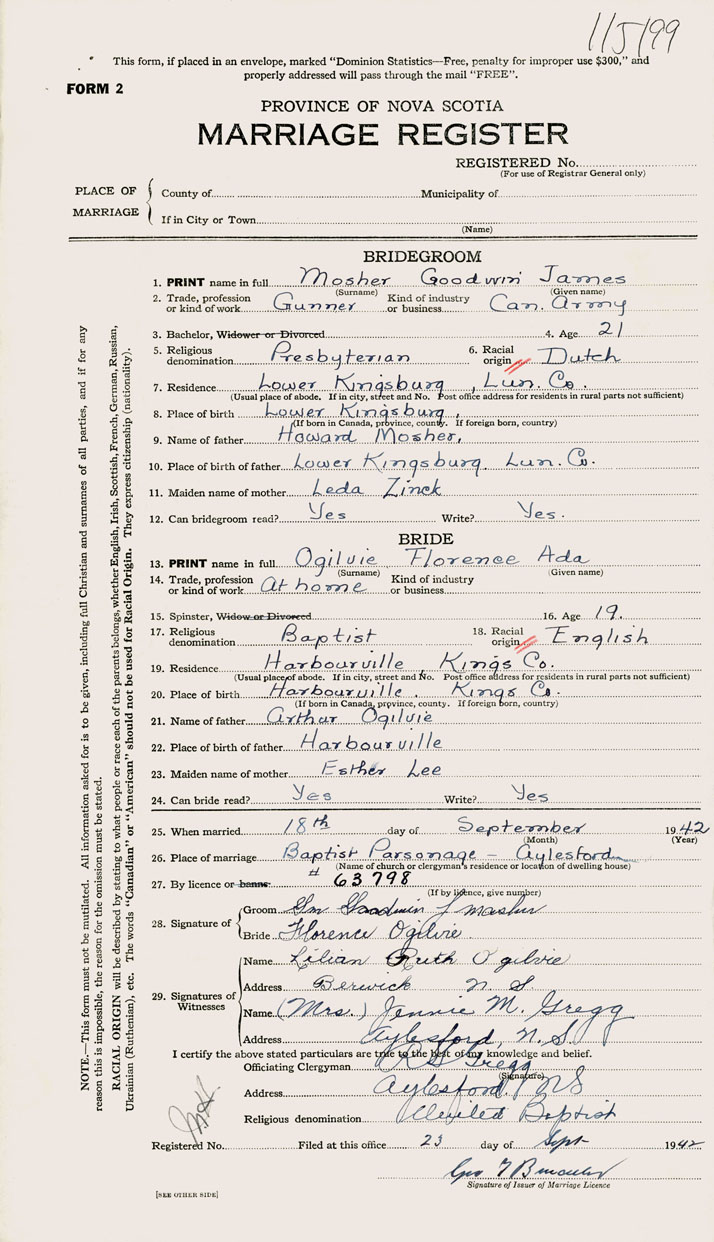 115199
This form, if placed in an envelope, marked "Dominion Statistics—Free, penalty for improper use $300," and
properly addressed will pass through the mail "FREE".
FORM 2
PROVINCE OF NOVA SCOTIA
MARRIAGE REGISTER
REGISTERED No.
(For use of Registrar General only)
PLACE OF MARRIAGE
County of Municipality of
If in City or Town
(Name)
BRIDEGROOM
1. PRINT name in full Mosher Goodwin James
(Surname) (Given name)
2. Trade, profession or kind of work Gunner Kind of industry or business Can. Army
3. Bachelor, Widower or Divorced 4. Age 21
5. Religious denomination Presbyterian 6. Racial origin Dutch
7. Residence Lower Kingsburg, Lun. Co.
(Usual place of abode. If in city, street and No. Post office address for residents in rural parts not sufficient)
8. Place of birth Lower Kingsburg,
(If born in Canada, province, county. If foreign born, country)
9. Name of father Howard Mosher,
10. Place of birth of father Lower Kingsburg Lun. Co.
11. Maiden name of mother Leda Zinck
12. Can bridegroom read? Yes Write? Yes.
BRIDE
13. PRINT name in full Ogilvie Florence Ada
(Surname) (Given name)
14. Trade, profession or kind of work At home Kind of industry or business
15. Spinster, Widow or Divorced 16. Age 19.
17. Religious denomination Baptist 18. Racial origin English
19. Residence Harbourville, Kings Co.
(Usual place of abode. If in city, street and No. Post office address for residents in rural parts not sufficient)
20. Place of birth Harbourville, Kings Co.
(If born in Canada, province, county. If foreign born, country)
21. Name of father Arthur Ogilvie
22. Place of birth of father Harbourville
23. Maiden name of mother Esther Lee
24. Can bride read? Yes Write? Yes
25. When married 18th day of September 1942
(Month) (Year)
26. Place of marriage Baptist Parsonage – Aylesford
(Name of church or clergyman's residence or location of dwelling house)
27. By licence or banns: # 63798
(If by licence, give number)
28. Signature of
Groom Goodwin J Mosher
Bride Florence Ogilvie
29. Signatures of Witnesses
Name Lilian Ruth Ogilvie
Address Berwick N. S.
Name (Mrs.) Jennie M. Gregg
Address Aylesford, N. S.
I certify the above stated particulars are true to the best of my knowledge and belief.
Officiating Clergyman Gregg
(Signature)
Address Aylesford, NS
Religious denomination United Baptist
Registered No. Filed at this office 23 day of Sept 1942
Geo
Signature of Issuer of Marriage Licence
[SEE OTHER SIDE]
NOTE.—This form must not be mutilated. All information asked for is to be given, including full Christian and surnames of all parties, and if for any
reason this is impossible, the reason for the omission must be stated.
RACIAL ORIGIN will be described by stating to what people or race each of the parents belongs, whether English, Irish, Scottish, French, German, Russian,
Ukrainian (Ruthenian), etc. The words "Canadian" or "American" should not be used for Racial Origin. They express citizenship (nationality).